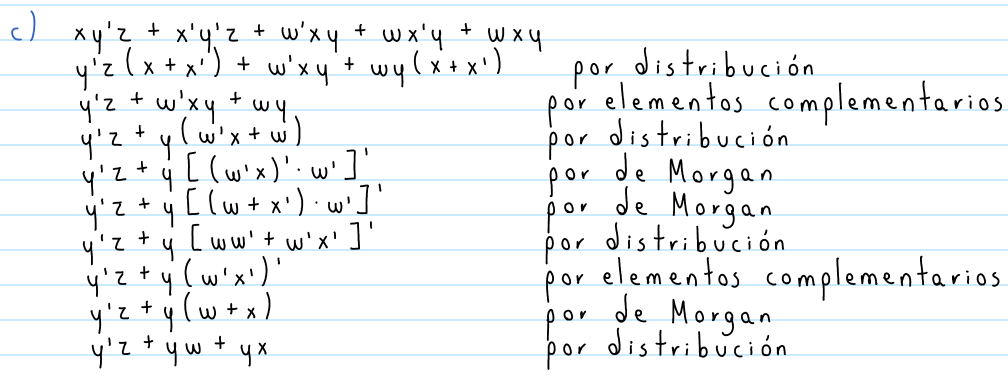 c) xy'z + x'y'z + w'xy + wx'y + wxy
y'z (x + x') + w'xy + wy (x + x') por distribución
y'z + w'xy + wy por elementos complementarios
y'z + y (w'x + w) por distribución
y'z + y [(w'x)' · w']' por de Morgan
y'z + y [(w + x') · w']' por de Morgan
y'z + y [ww' + w'x']' por distribución
y'z + y (w'x')' por elementos complementarios
y'z + y (w + x) por de Morgan
y'z + yw + yx por distribución